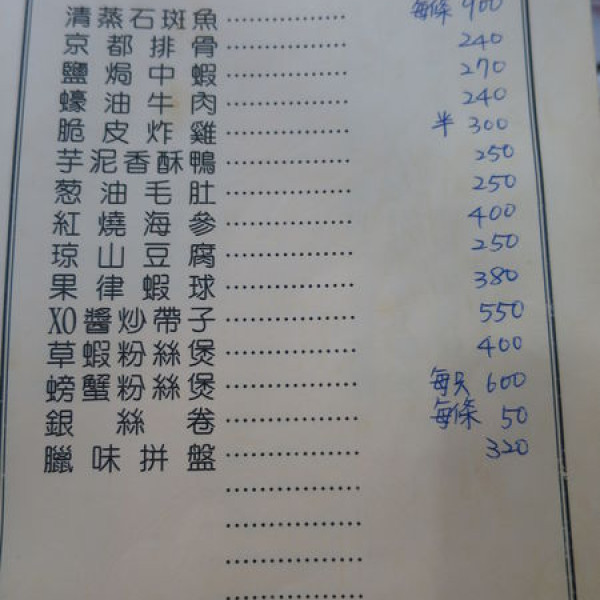 清蒸石斑魚 每條 900
京都排骨 240
鹽焗中蝦 270
蠔油牛肉 240
脆皮炸雞 半 300
芋泥香酥鴨 250
葱油毛肚 250
紅燒海參 400
琼山豆腐 250
果律蝦球 380
XO醬炒帶子 550
草蝦粉絲煲 400
螃蟹粉絲煲 每只 600
銀絲卷 每條 50
臘味拼盤 320